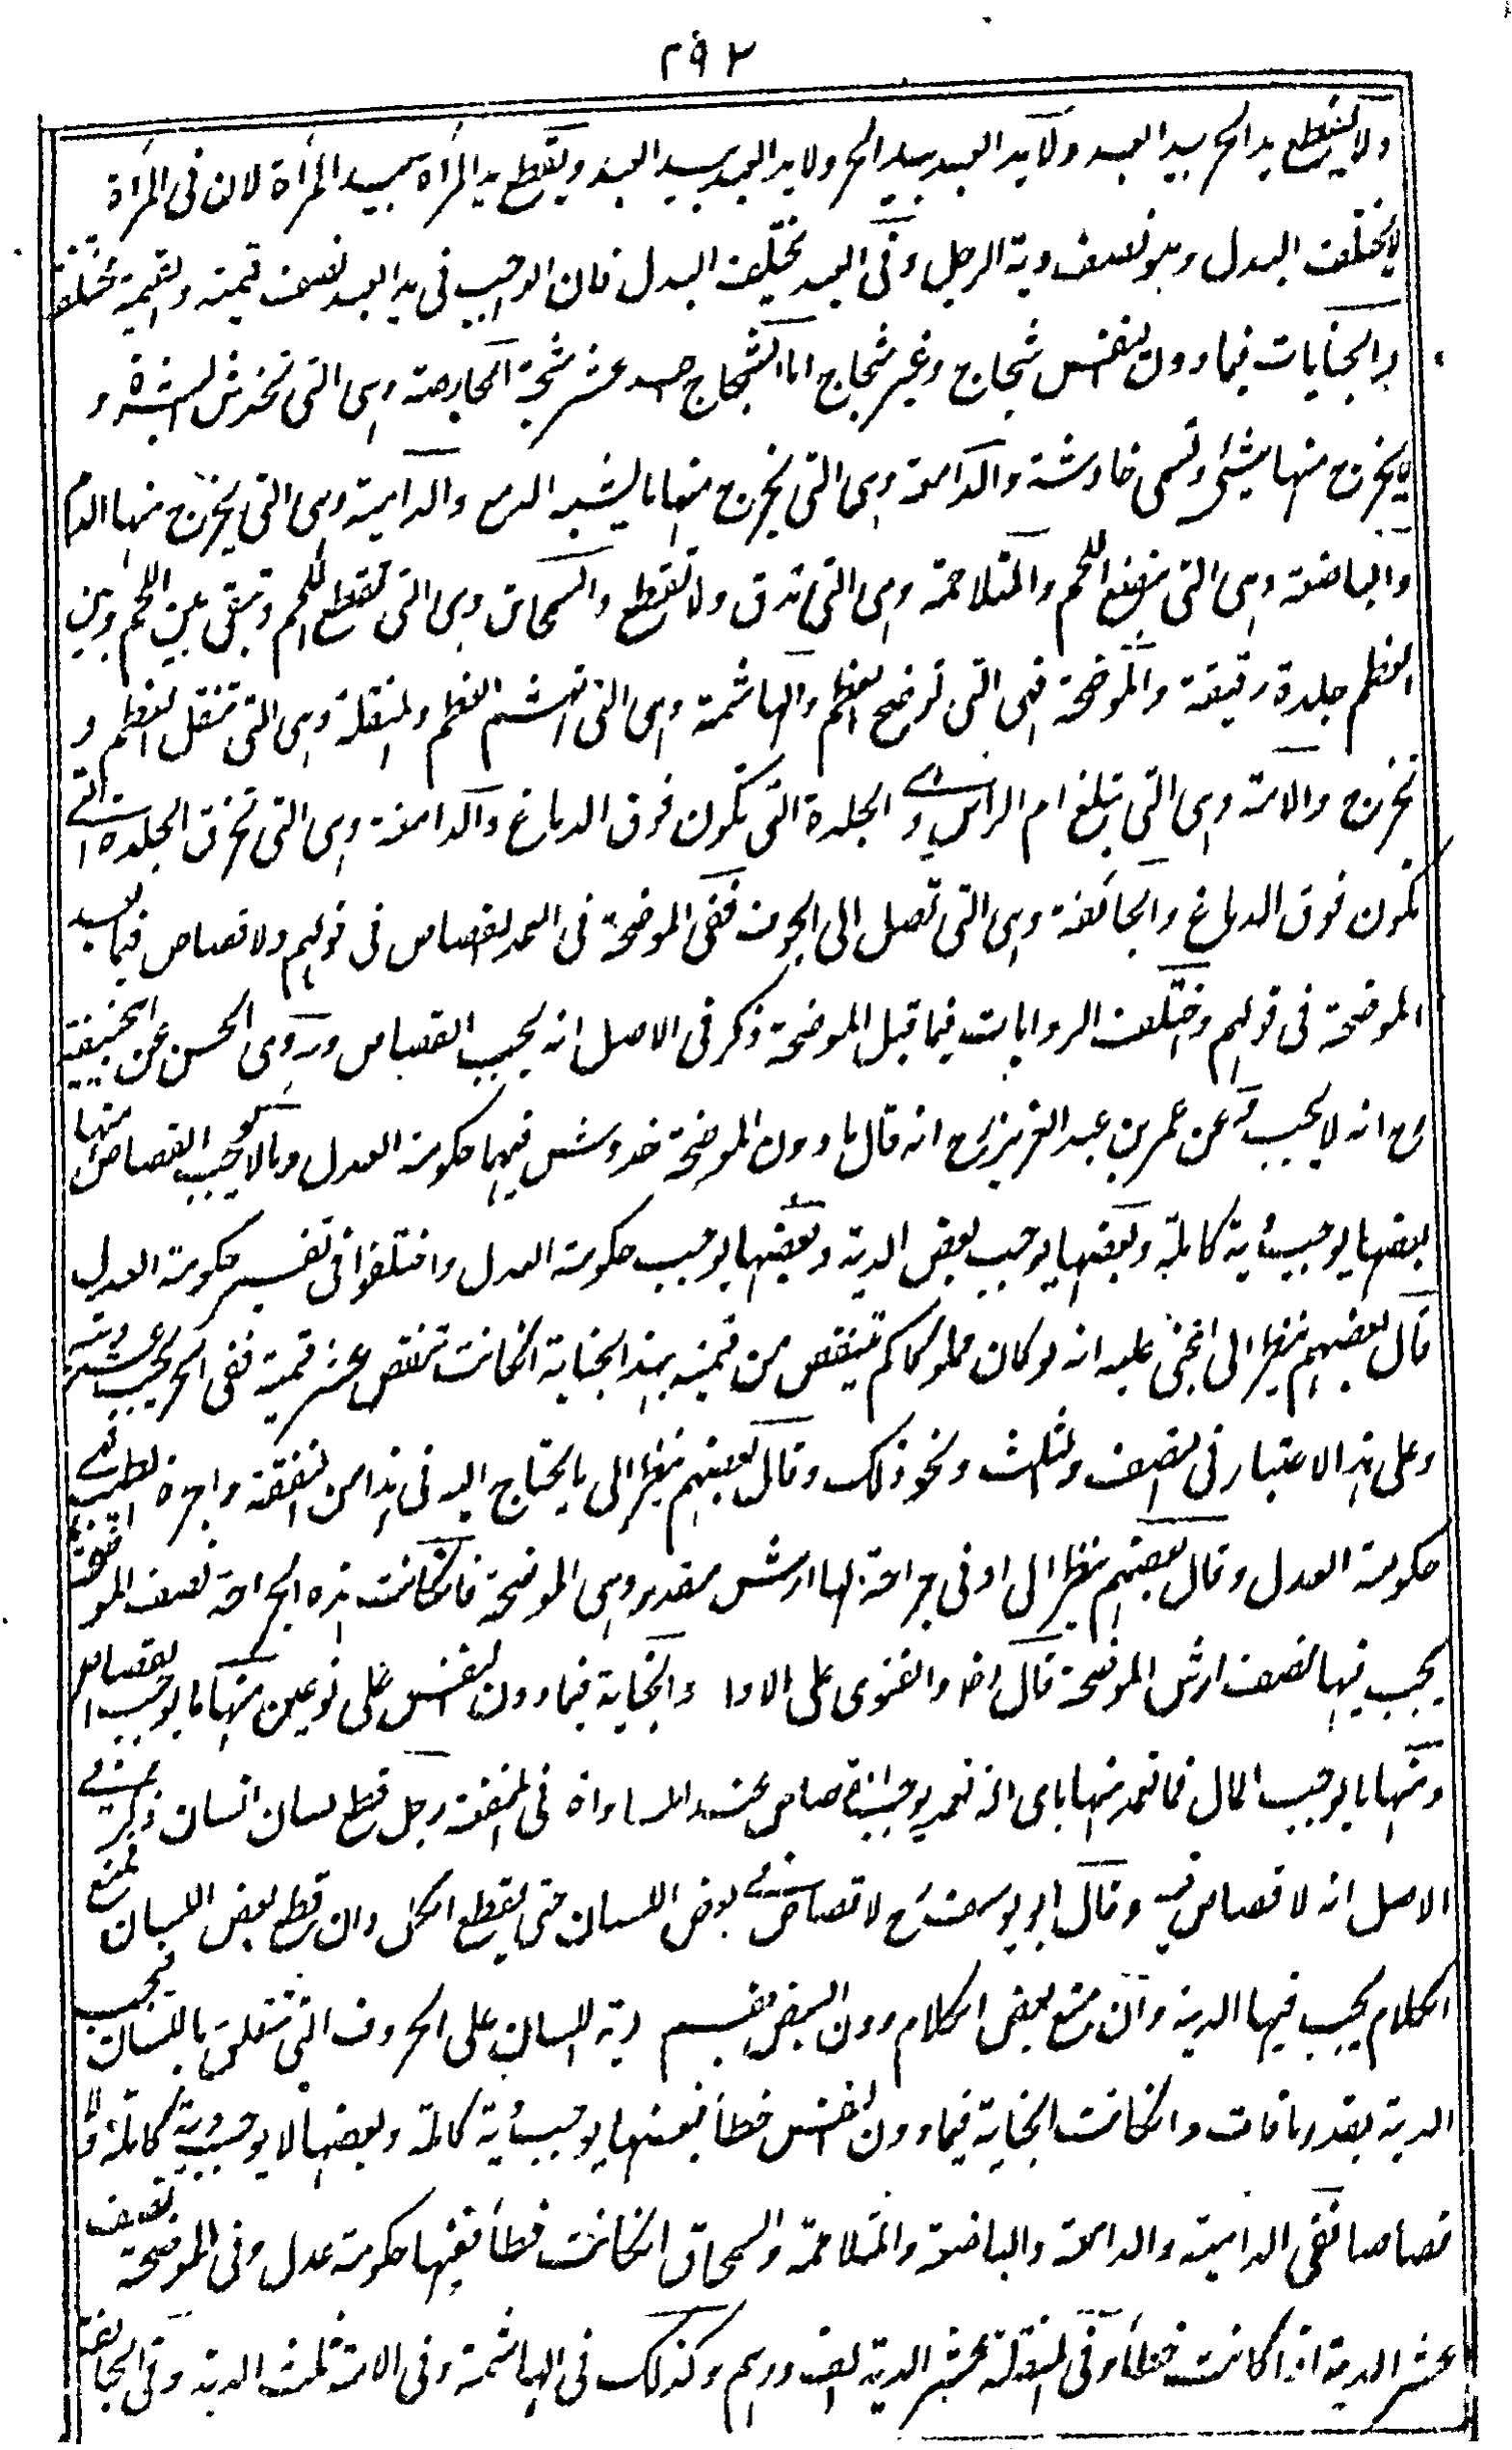 ٢٩٢
ولا يقطع يد الحر بيد العبد ولا يد العبد بيد الحر ولا يد العبد بيد العبد ويقطع يد المرأة بيد المرأة لان فى المرأة
لا يختلف البدل وهو نصف دية الرجل وفى العبد يختلف البدل فان الواجب فى يد العبد نصف قيمته والقيمة مختلفة
والجنايات فيما دون النفس شجاج وغير شجاج اما الشجاج احد عشر شجة الحارصة وهى التى تخدش البشرة و
لا يخرج منها شئ وتسمى خادشة والدامعة وهى التى يخرج منها ما يشبه الدمع والدامية وهى التى يخرج منها الدم
والباضعة وهى التى تبضع اللحم والمتلاحمة وهى التى تدق ولا تقطع والسمحاق وهى التى تقطع اللحم وتبقى بين اللحم وبين
العظم جلدة رقيقة والموضحة فهى التى توضح العظم والهاشمة وهى التى تهشم العظم والمنقلة وهى التى تنقل العظم و
تخرج والامة وهى التى تبلغ ام الراس وهى الجلدة التى تكون فوق الدماغ والدامغة وهى التى تخرق الجلدة التى
تكون فوق الدماغ والجائفة وهى التى تصل الى الجوف ففى الموضحة فى العمد القصاص فى قولهم ولا قصاص فيما بعد
الموضحة فى قولهم واختلفت الروايات فيما قبل الموضحة ذكر فى الاصل انه يجب القصاص وروى الحسن عن ابيحنيفة
رح انه لا يجب وعن عمر بن عبد العزيز رح انه قال ما دون الموضحة خدوش فيها حكومة العدل وما لا يجب القصاص منها
بعضها يوجب دية كاملة وبعضها يوجب بعض الدية وبعضها يوجب حكومة العدل واختلفوا فى تفسير حكومة العدل
قال بعضهم ينظر الى المجنى عليه انه لو كان مملوكا كم ينتقص من قيمته بهذه الجناية انكانت تنقص عشر قيمته ففى الحر يجب عشر ديته
وعلى هذا الاعتبار فى النصف والثلث ونحو ذلك وقال بعضهم ينظر الى ما يحتاج اليه فى هذا من النفقة واجرة الطبيب فهى
حكومة العدل وقال بعضهم ينظر الى ادنى جراحة لها ارش مقدر وهى الموضحة فانكانت هذه الجراحة نصف الموضحة
يجب فيها نصف ارش الموضحة قال رض والفتوى على الاول والجناية فيما دون النفس على نوعين منها ما يوجب القصاص
ومنها ما يوجب المال فما تعمد منها باى الة تعمد يوجب القصاص عند المساواة فى المنفعة رجل قطع لسان انسان ذكر فى
الاصل انه لا قصاص فيه وقال ابو يوسف رح لا قصاص فى بعض اللسان حتى يقطع الكل وان قطع بعض اللسان فمنع
الكلام يجب فيها الدية وان منع بعض الكلام دون البعض يقسم دية اللسان على الحروف التى تتعلق باللسان فيجب
الدية بقدر ما فات وانكانت الجناية فيما دون النفس خطأ فبعضها يوجب دية كاملة وبعضها لا يوجب دية كاملة ولا
قصاصا ففى الدامية والدامعة والباضعة والمتلاحمة والسمحاق انكانت خطأ ففيها حكومة عدل وفى الموضحة نصف
عشر الدية اذا كانت خطأ وفى المنقلة عشر الدية الف درهم وكذلك فى الهاشمة وفى الامة ثلث الدية وفى الجائفة